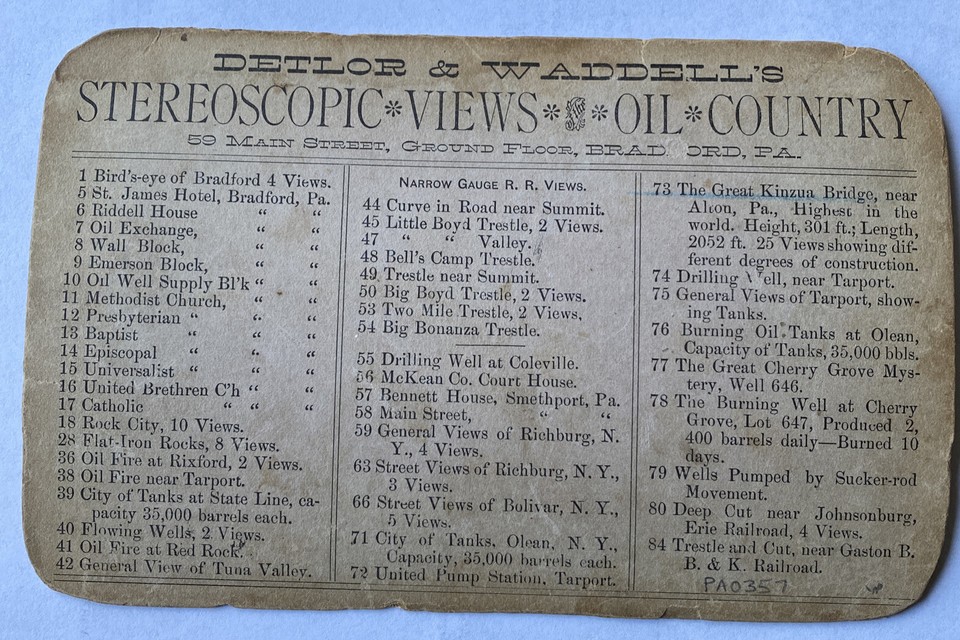 DETLOR & WADDELL'S
STEREOSCOPIC*VIEWS* *OIL*COUNTRY
59 MAIN STREET, GROUND FLOOR, BRAD ORD, PA.
1 Bird's-eye of Bradford 4 Views.
5 St. James Hotel, Bradford, Pa.
6 Riddell House “ “
7 Oil Exchange, “ “
8 Wall Block, “ “
9 Emerson Block, “ “
10 Oil Well Supply Bl'k “ “
11 Methodist Church, “ “
12 Presbyterian “ “ “
13 Baptist “ “ “
14 Episcopal “ “ “
15 Universalist “ “ “
16 United Brethren C'h “ “
17 Catholic “ “ “
18 Rock City, 10 Views.
28 Flat-Iron Rocks, 8 Views.
36 Oil Fire at Rixford, 2 Views.
38 Oil Fire near Tarport.
39 City of Tanks at State Line, ca-
pacity 35,000 barrels each.
40 Flowing Wells, 2 Views.
41 Oil Fire at Red Rock.
42 General View of Tuna Valley.
NARROW GAUGE R. R. VIEWS.
44 Curve in Road near Summit.
45 Little Boyd Trestle, 2 Views.
47 “ “ Valley.
48 Bell's Camp Trestle.
49 Trestle near Summit.
50 Big Boyd Trestle, 2 Views.
53 Two Mile Trestle, 2 Views,
54 Big Bonanza Trestle.
55 Drilling Well at Coleville.
56 McKean Co. Court House.
57 Bennett House, Smethport, Pa.
58 Main Street, “ “
59 General Views of Richburg, N.
Y., 4 Views.
63 Street Views of Richburg, N. Y.,
3 Views.
66 Street Views of Bolivar, N. Y.,
5 Views.
71 City of Tanks, Olean, N. Y.,
Capacity, 35,000 barrels each.
72 United Pump Station, Tarport.
73 The Great Kinzua Bridge, near
Alton, Pa., Highest in the
world. Height, 301 ft.; Length,
2052 ft. 25 Views showing dif-
ferent degrees of construction.
74 Drilling Well, near Tarport.
75 General Views of Tarport, show-
ing Tanks.
76 Burning Oil Tanks at Olean,
Capacity of Tanks, 35,000 bbls.
77 The Great Cherry Grove Mys-
tery, Well 646.
78 The Burning Well at Cherry
Grove, Lot 647, Produced 2,
400 barrels daily—Burned 10
days.
79 Wells Pumped by Sucker-rod
Movement.
80 Deep Cut near Johnsonburg,
Erie Railroad, 4 Views.
84 Trestle and Cut, near Gaston B.
B. & K. Railroad.
PA0357